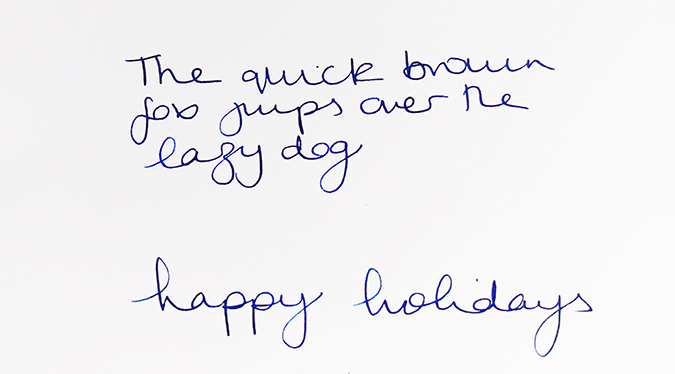 The quick brown
fox jumps over the
lazy dog
happy holidays